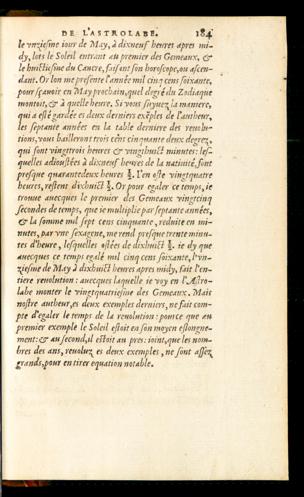 DE L'ASTROLABE. 184
le vnziesme iour de May, à dixneuf heures apres mi-
dy, lors le Soleil entrant au premier des Gemeaux, &
le huictiesme du Cancre, faisant son horoscope, ou ascen-
dant. Or lon me presente l'année mil cinq cens soixante,
pour sçauoir en May prochain, quel degré du Zodiaque
montoit, & à quelle heure. Si vous suyuez la maniere,
qui a esté gardée es deux derniers exẽples de l'autheur,
les septante années en la table derniere des reuolu-
tions, vous bailleront trois cẽts cinquante deux degrez,
qui sont vingttrois heures & vingthuict minutes: les-
quelles adioustées à dixneuf heures de la natiuité, sont
presque quarantedeux heures ½. I'en oste vingtquatre
heures, restent dixhuict ½. Or pour egaler ce temps, ie
trouue auecques le premier des Gemeaux vingtcinq
secondes de temps, que ie multiplie par septante années,
& la somme mil sept cens cinquante, reduite en mi-
nutes, par vne sexagene, me rend presque trente minu-
tes d'heure, lesquelles ostées de dixhuict ½. ie dy que
auecques ce temps egalé mil cinq cens soixante, l'vn-
ziesme de May à dixhuict heures apres midy, fait l'en-
tiere reuolution: auecques laquelle ie voy en l'Astro-
labe monter le vingtquatriesme des Gemeaux. Mais
nostre autheur, es deux exemples derniers, ne fait com-
pte d'egaler le temps de la reuolution: pource que au
premier exemple le Soleil estoit en son moyen eslongne-
ment: & au second, il estoit au pres: ioint, que les nom-
bres des ans, reuoluz es deux exemples, ne sont assez
grands, pour en tirer equation notable.